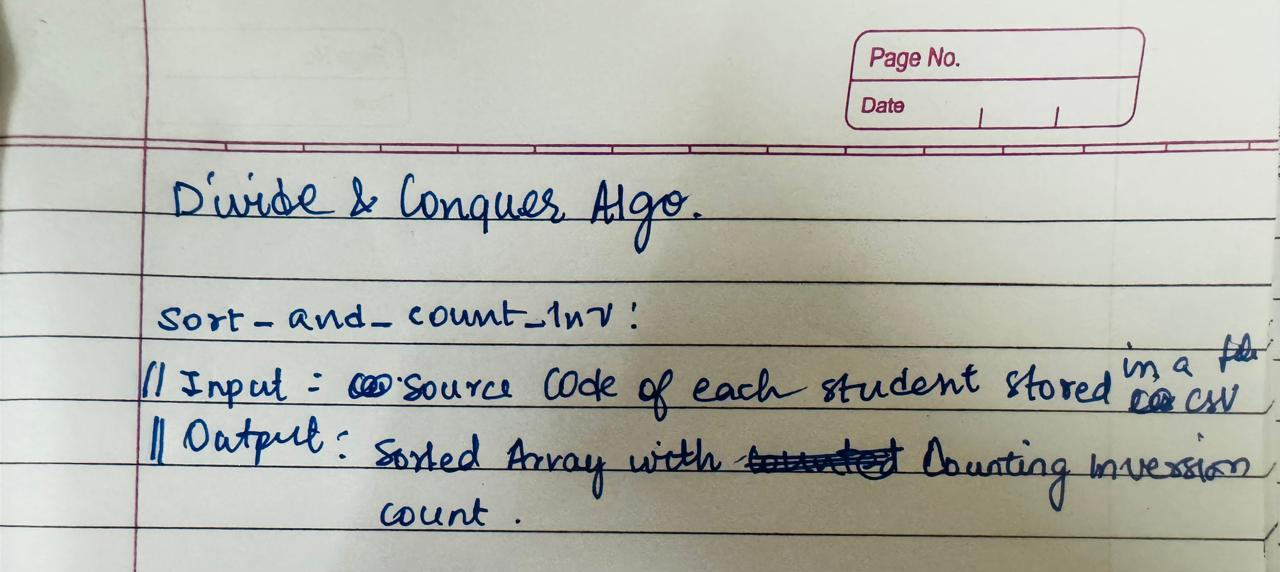 Page No.
Date
Divide & Conquer Algo.
Sort_and_count_Inv:
// Input : source code of each student stored in a csv
// Output : Sorted Array with Counting inversion
count.